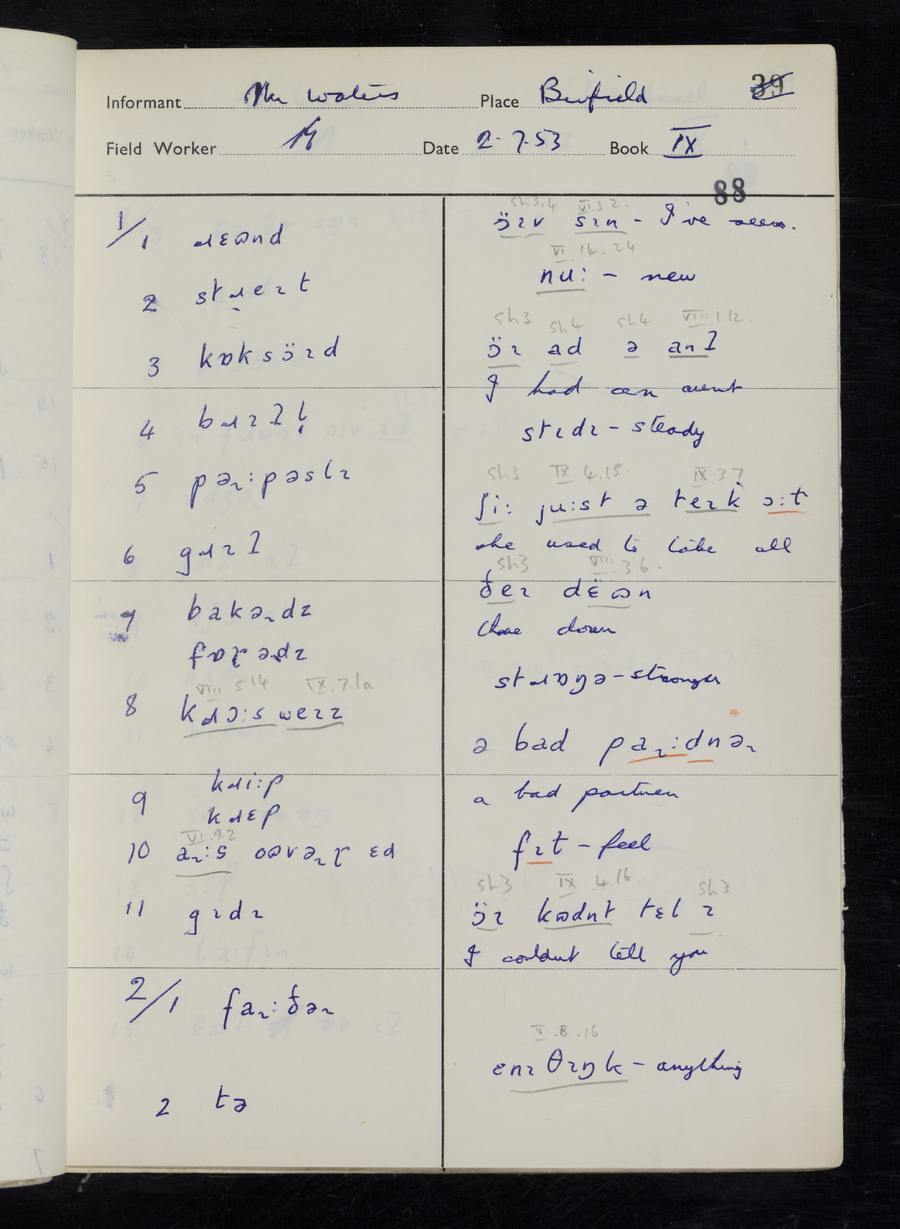 Informant Mr Waters Place Binfield 39
Field Worker Date 2·7·53 Book IX
88
1/1 ɹɛɷnd
2 stɹeɪt
3 kɒksɔ̈ɪd
4 bɹɪʔl̩
5 pəɹːpəslɪ
6 gɹɪʔ
7 bakəɹdz
fɒɼədz
VIII 5 14 IX.7.1a
8 kɹɔːs weɪz
9 kɹiːp
kɹɛp
VI.9.2
10 aɹːs oɷvəɹɼ ɛd
11 gɪdɪ
2/1 faɹːðəɹ
2 tə
sh3,4 VI.3 2.
ɔ̈ɪv sɪn – I've seen.
VI 14.24
nuː – new
sh3 sh4 sh4 VIII.1.12.
ɔ̈ɪ ad ə anʔ
I had an aunt
stɪdɪ – steady
sh3 IX 4.15. IX.3 7
ʃiː juːst ə teɪk ɔːt
she used to take all
sh3 VIII.3 6.
ðeɪ dɛ̈ɷn
there down
stɹɒŋə – stronger
ə bad paɹːdnəɹ
a bad partner
fɪt – feel
sh3 IX 4.16 sh3
ɔ̈ɪ kɷdnt tɛl ɪ
I couldn't tell you
V.8.16
ɛnɪ θɪŋk – anything